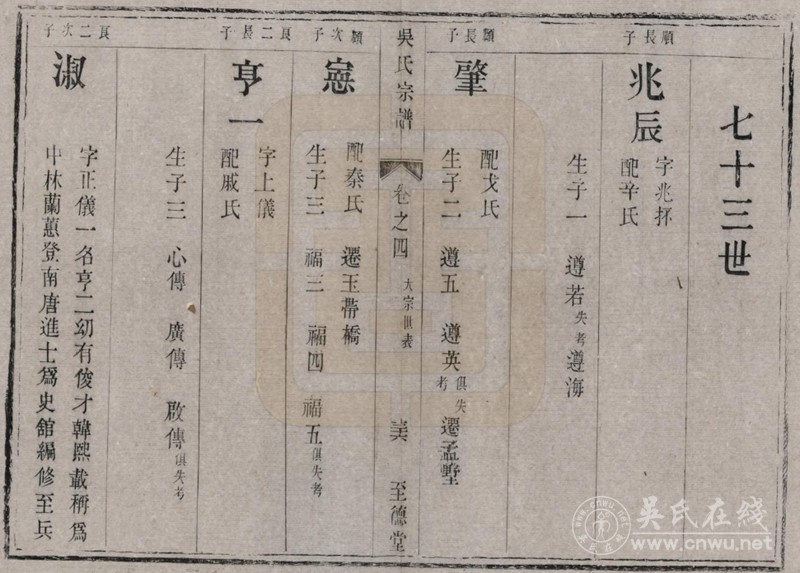 七十三世
順長子
兆辰
字兆抔
配辛氏
生子一 遵若失考遵海
顯長子
肇
配戈氏
生子二 遵五 遵英俱失考 遷孟墅
吳氏宗譜
卷之四 大宗世表
至德堂
顯次子
寭
配秦氏 遷玉帶橋
生子三 福三 福四 福五俱失考
良二長子
亨一
字上儀
配戚氏
生子三 心傳 廣傳 啟傳俱失考
良二次子
淑
字正儀一名亨二幼有俊才韓熙載稱爲
中林蘭蕙登南唐進士爲史舘編修至兵
吴氏在线
www.cnwu.net